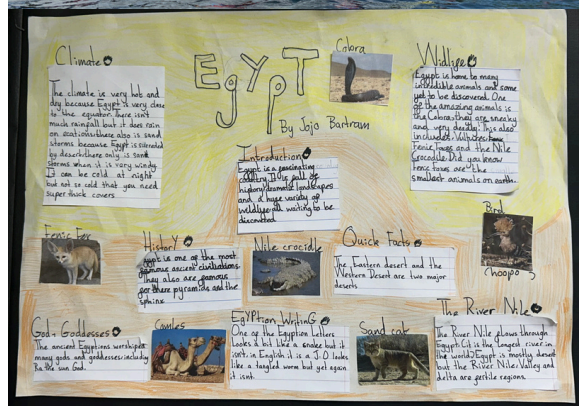 Climate
The climate is very hot and
dry because Egypt is very close
to the equator. there isn't
much rainfall but it does rain
on ocations. there also is sand
storms because Egypt is surrouded
by desert. there only is sand
storms when it is very windy.
It can be cold at night
but not so cold that you need
super thick covers
Egypt
By Jojo Bartram
Cobra
Wildlife
Egypt is home to many
incredible animals and some
yet to be discovered. One
of the amazing animals is
the Cobra, they are sneaky
and very deadly. This also
includes: Vultures, Fenec
Fenic Foxes and the Nile
Crocodile. Did you know
fenic foxes are the
smallest animals on earth.
Introduction
Egypt is a fascinating
country. It is full of
history, dramatic landscapes
and a huge variety of
wildlife all waiting to be
discovered
Bird
(hoopo)
Fenic Fox
History
Egypt is one of the most
famous ancient civilisations.
They also are famous
for there pyramids and the
sphinx
Nile crocidle
Quick Facts
The Eastern desert and the
Western Desert are two major
deserts
God+Goddesses
The ancient Egyptions worshiped
many gods and goddesses including
Ra the sun God.
Camles
Egyption Writing
One of the Egyption Letters
looks a bit like a snake but it
isn't, in English it is a J. O looks
like a tangled worm but yet again
it isnt.
Sand cat
The River Nile
The River Nile flows through
Egypt. it is the longest river in
the world. Egypt is mostly desert
but the River Nile, Valley and
delta are fertile regions.